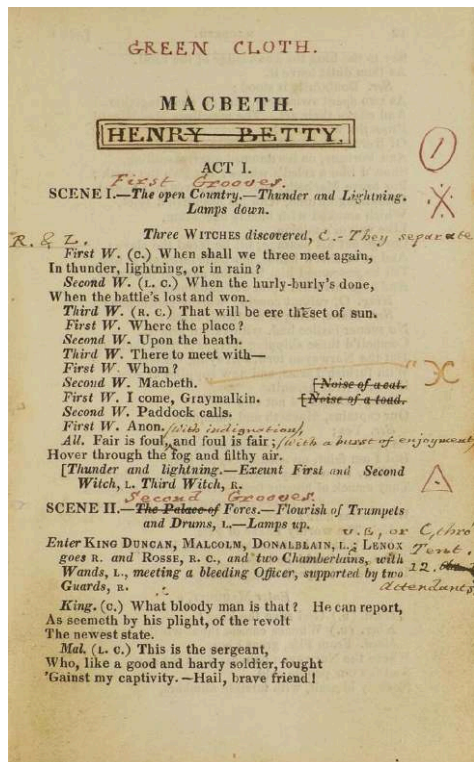 GREEN CLOTH.
MACBETH.
HENRY BETTY.
ACT I.
First Grooves.
SCENE I.—The open Country.—Thunder and Lightning.
Lamps down.
R. & L. Three WITCHES discovered, C. - They separate
First W. (C.) When shall we three meet again,
In thunder, lightning, or in rain?
Second W. (L. C.) When the hurly-burly's done,
When the battle's lost and won.
Third W. (R. C.) That will be ere the set of sun.
First W. Where the place?
Second W. Upon the heath.
Third W. There to meet with—
First W. Whom?
Second W. Macbeth. [Noise of a cat.
First W. I come, Graymalkin. [Noise of a toad.
Second W. Paddock calls.
First W. Anon. (with indignation)
All. Fair is foul, and foul is fair; (with a burst of enjoyment)
Hover through the fog and filthy air.
[Thunder and lightning.—Exeunt First and Second
Witch, L. Third Witch, R.
Second Grooves.
SCENE II.—The Palace of Fores.—Flourish of Trumpets
and Drums, L.—Lamps up.
U.E, or C, thro'
Enter KING DUNCAN, MALCOLM, DONALBLAIN, L.; LENOX Tent.
goes R. and ROSSE, R. C., and two Chamberlains, with
Wands, L., meeting a bleeding Officer, supported by two 12.
Guards, R. attendants
King. (C.) What bloody man is that? He can report,
As seemeth by his plight, of the revolt
The newest state.
Mal. (L. C.) This is the sergeant,
Who, like a good and hardy soldier, fought
'Gainst my captivity.—Hail, brave friend!
1